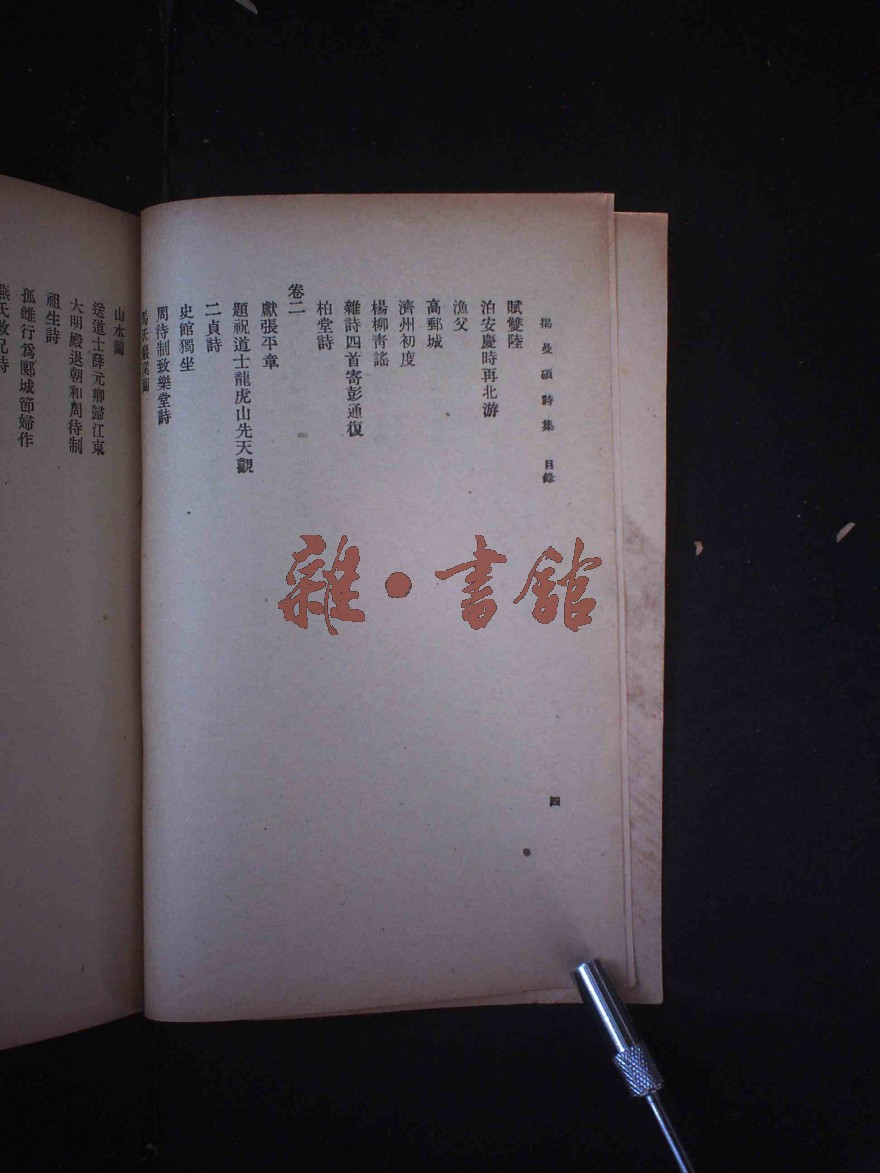 揭曼碩詩集 目錄
賦雙陸
泊安慶時再北游
漁父
高郵城
濟州初度
楊柳靑謠
雜詩四首寄彭通復
柏堂詩
卷二
獻張平章
題祝道士龍虎山先天觀
二貞詩
史館獨坐
周待制致樂堂詩
四
山水圖
送道士薛元卿歸江東
大明殿退朝和周待制
祖生詩
孤雌行爲郾城節婦作
雜·書館